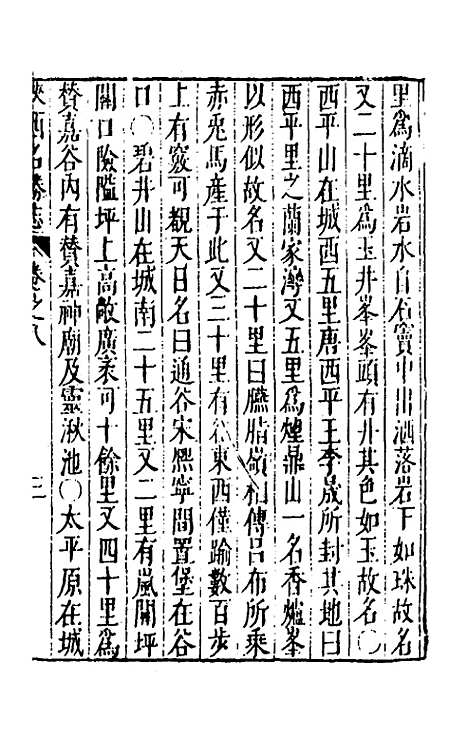 里爲滴水岩水自石竇中出洒落岩下如珠故名
又二十里爲玉井峯峯頭有井其色如玉故名〇
西平山在城西五里唐西平王李晟所封其地曰
西平里之蘭家灣又五里爲煙鼎山一名香爐峯
以形似故名又二十里曰臙脂嶺相傳吕布所乘
赤兎馬産于此又三十里有谷東西僅踰數百步
上有竅可觀天日名曰通谷宋熙寧間置堡在谷
口〇碧井山在城南二十五里又二里有嵐關坪
關口險隘坪上高敞廣袤可十餘里又四十里爲
賛嘉谷内有賛嘉神廟及靈湫池〇太平原在城
陜西名勝志 卷之八 三